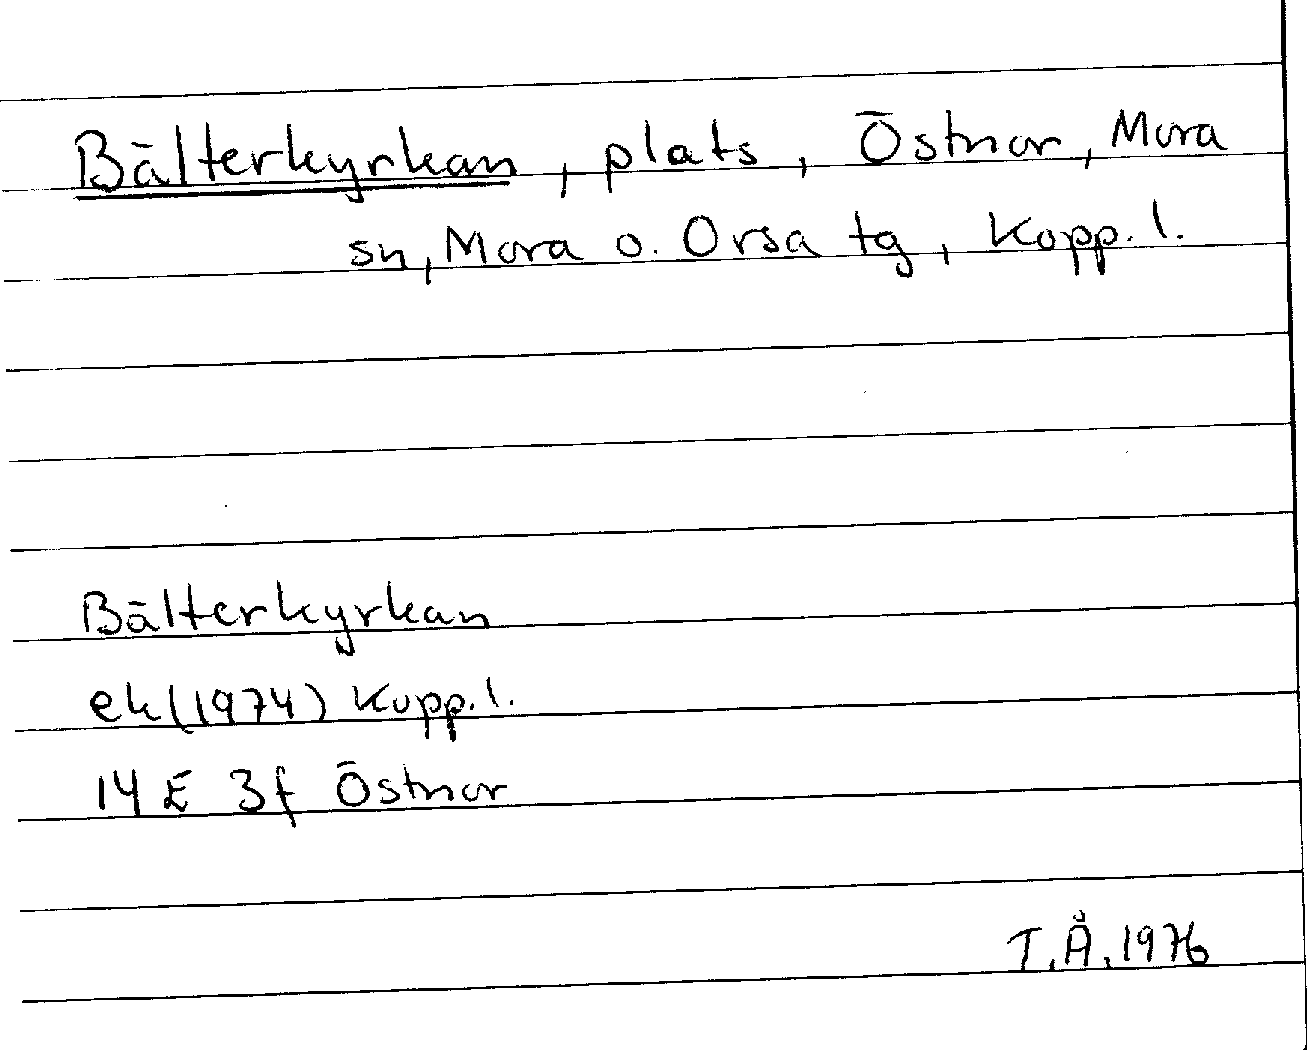 Bälterkyrkan, plats, Östnor, Mora
sn, Mora o. Orsa tg, Kopp. l.
Bälterkyrkan
ek (1974) Kopp. l.
14 E 3f Östnor
T.Å. 1976